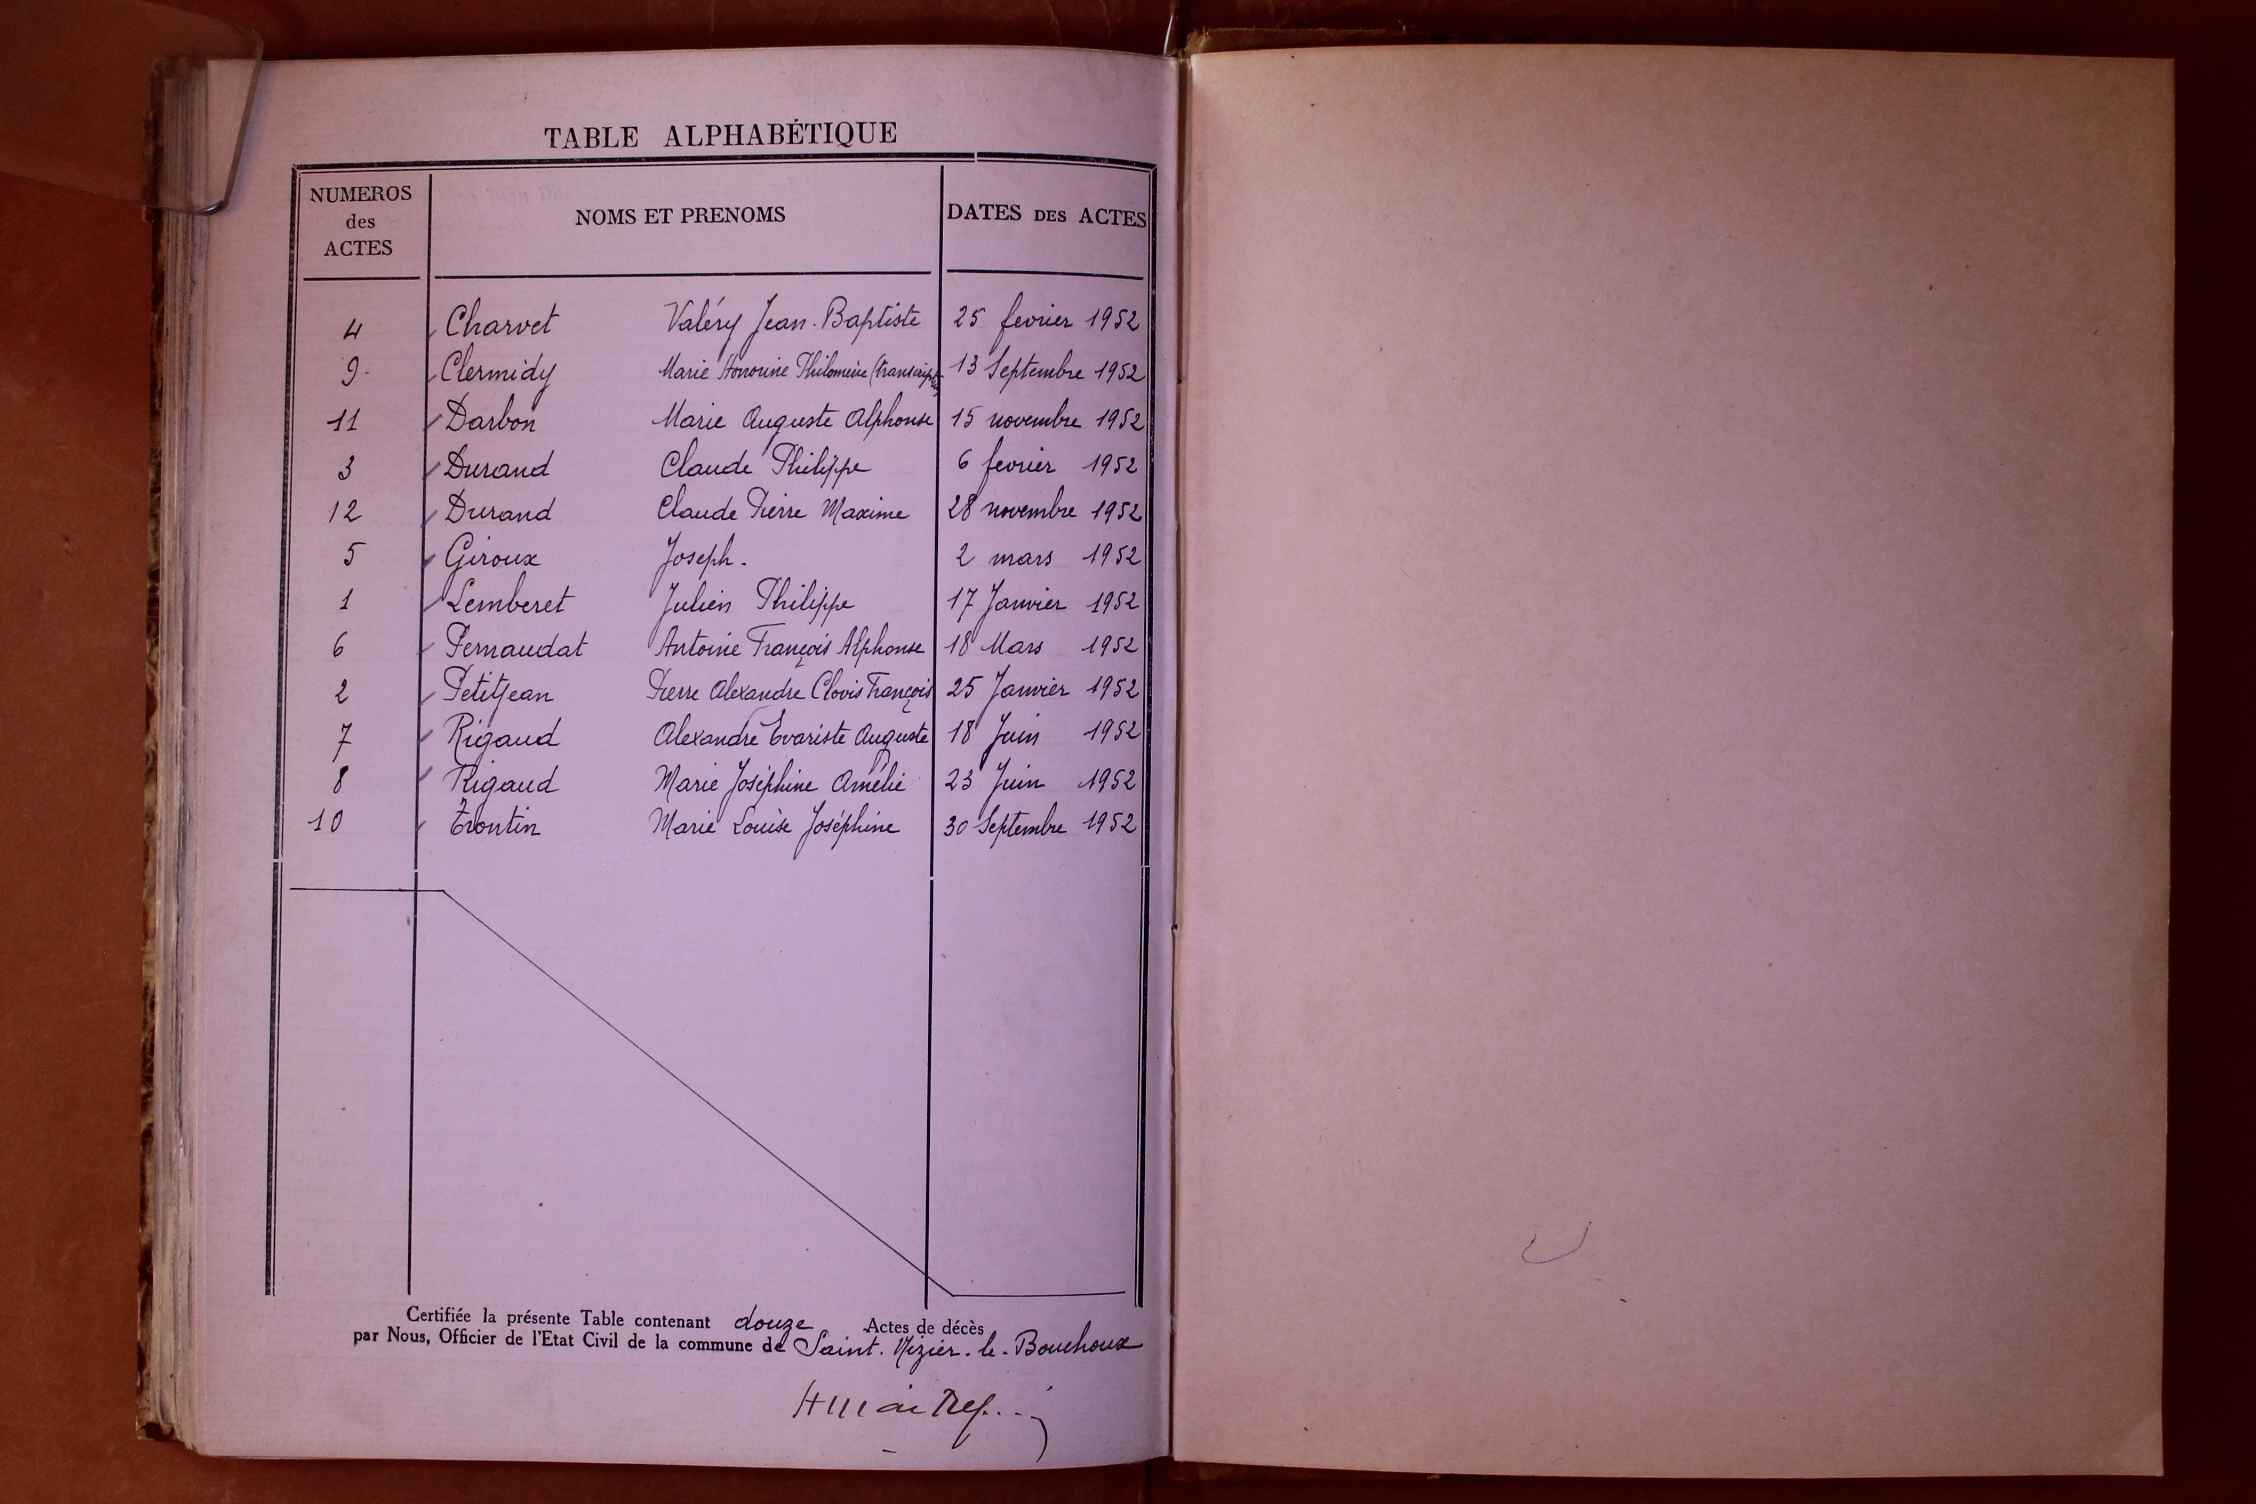 TABLE ALPHABÉTIQUE
NUMEROS
des
ACTES
NOMS ET PRENOMS
DATES DES ACTES
4 Charvet Valéry Jean-Baptiste 25 fevrier 1952
9 Clermidy Marie Honorine Philomène (transcription) 13 Septembre 1952
11 Darbon Marie Auguste Alphonse 15 novembre 1952
3 Durand Claude Philippe 6 fevrier 1952
12 Durand Claude Pierre Maxime 28 novembre 1952
5 Giroux Joseph. 2 mars 1952
1 Lemberet Julien Philippe 17 Janvier 1952
6 Pernaudat Antoine François Alphonse 18 Mars 1952
2 Petitjean Pierre Alexandre Clovis François 25 Janvier 1952
7 Rigaud Alexandre Evariste Auguste 18 Juin 1952
8 Rigaud Marie Joséphine Amélie 23 Juin 1952
10 Trontin Marie Louise Joséphine 30 Septembre 1952
Certifiée la présente Table contenant douze Actes de décès
par Nous, Officier de l'Etat Civil de la commune de Saint-Nizier-le-Bouchoux